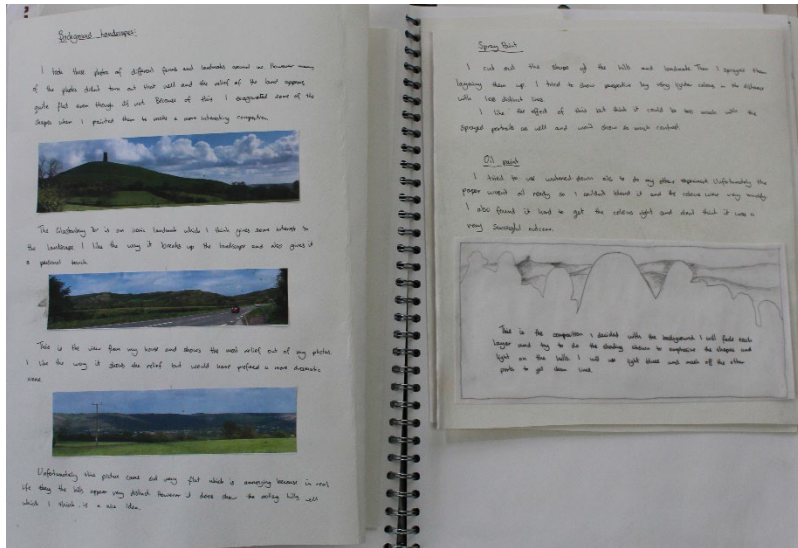 Background landscapes:
I took these photos of different farms and landmarks around me. However many
of the photos didnt turn out that well and the relief of the land appears
quite flat even though its not. Because of this I exaggerated some of the
shapes when I painted them to create a more interesting composition.
The Glastonbury Tor is an iconic landmark which I think gives some interest to
the landscape. I like the way it breaks up the landscape and also gives it
a personal touch.
This is the view from my house and shows the most relief out of my photos.
I like the way it shows the relief but would have prefered a more dramatic
one.
Unfortunately this picture came out very flat which is annoying because in real
life they the hills appear very distinct. However it does show the hills well
which I think is a nice idea.
Spray Paint
I cut out the shape of the hills and landmark. Then I sprayed them
layering them up. I tried to show perspective by using lighter colours in the distance
with less distinct lines.
I like the effect of this but think it could be too much with the
sprayed portraits as well and wont show so much contrast.
Oil paint
I tried to use watered down oils to do my other experiment. Unfortunately the
paper wasnt oil ready so I couldnt blend it and the colours were very muddy.
I also found it hard to get the colours right and dont think it was a
very successful outcome.
This is the composition I decided with the background. I will fade each
layer and try to do the shading shown to emphasise the shapes and
light on the hills. I will use light blues and mask off the other
parts to get clean lines.